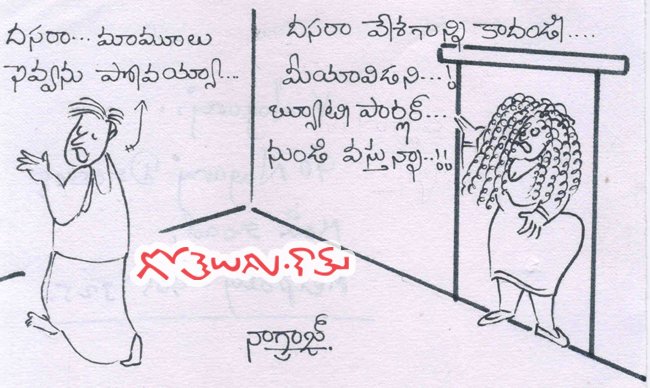 దసరా... మామూలు
ఇవ్వను పోవయ్యా...
దసరా వేశగాన్ని కాదండి....
మీయావిడని...!
బ్యూటి పార్లర్...
నుండి వస్తున్నా..!!
గోతెలుగు.కామ్
నాగ్రాజ్.